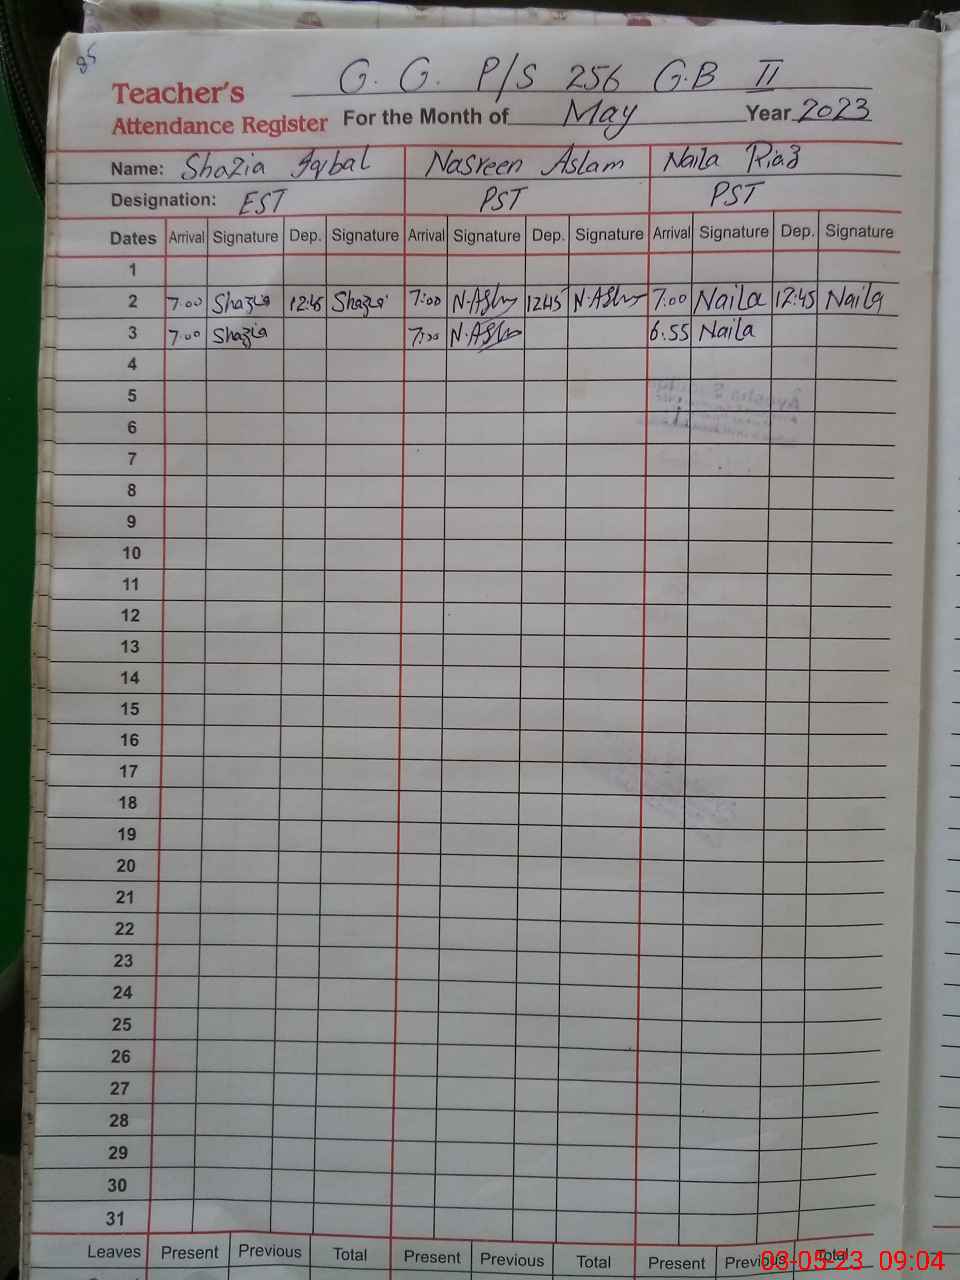 85
G. G. P/S 256 G.B II
Teacher's
Attendance Register For the Month of May Year 2023
Name: Shazia Iqbal Nasreen Aslam Naila Riaz
Designation: EST PST PST
Dates Arrival Signature Dep. Signature Arrival Signature Dep. Signature Arrival Signature Dep. Signature
1
2 7:00 Shazia 12:45 Shazia 7:00 N.Aslam 12:45 N.Aslam 7:00 Naila 12:45 Naila
3 7:00 Shazia 7:00 N.Aslam 6:55 Naila
4
5
6
7
8
9
10
11
12
13
14
15
16
17
18
19
20
21
22
23
24
25
26
27
28
29
30
31
Leaves Present Previous Total Present Previous Total Present Previous Total
03-05-23 09:04